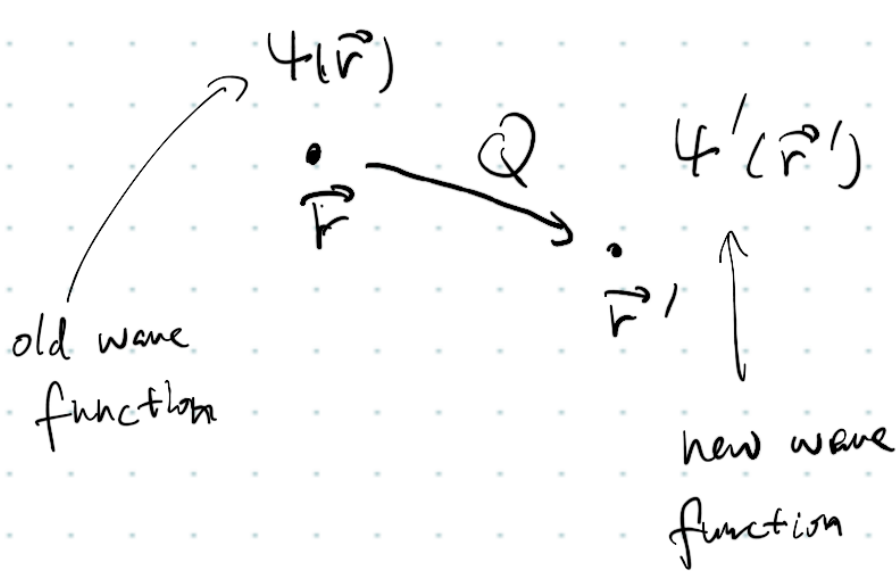 ψ(r⃗)
Q
ψ'(r⃗')
r⃗
r⃗'
old wave
function
new wave
function